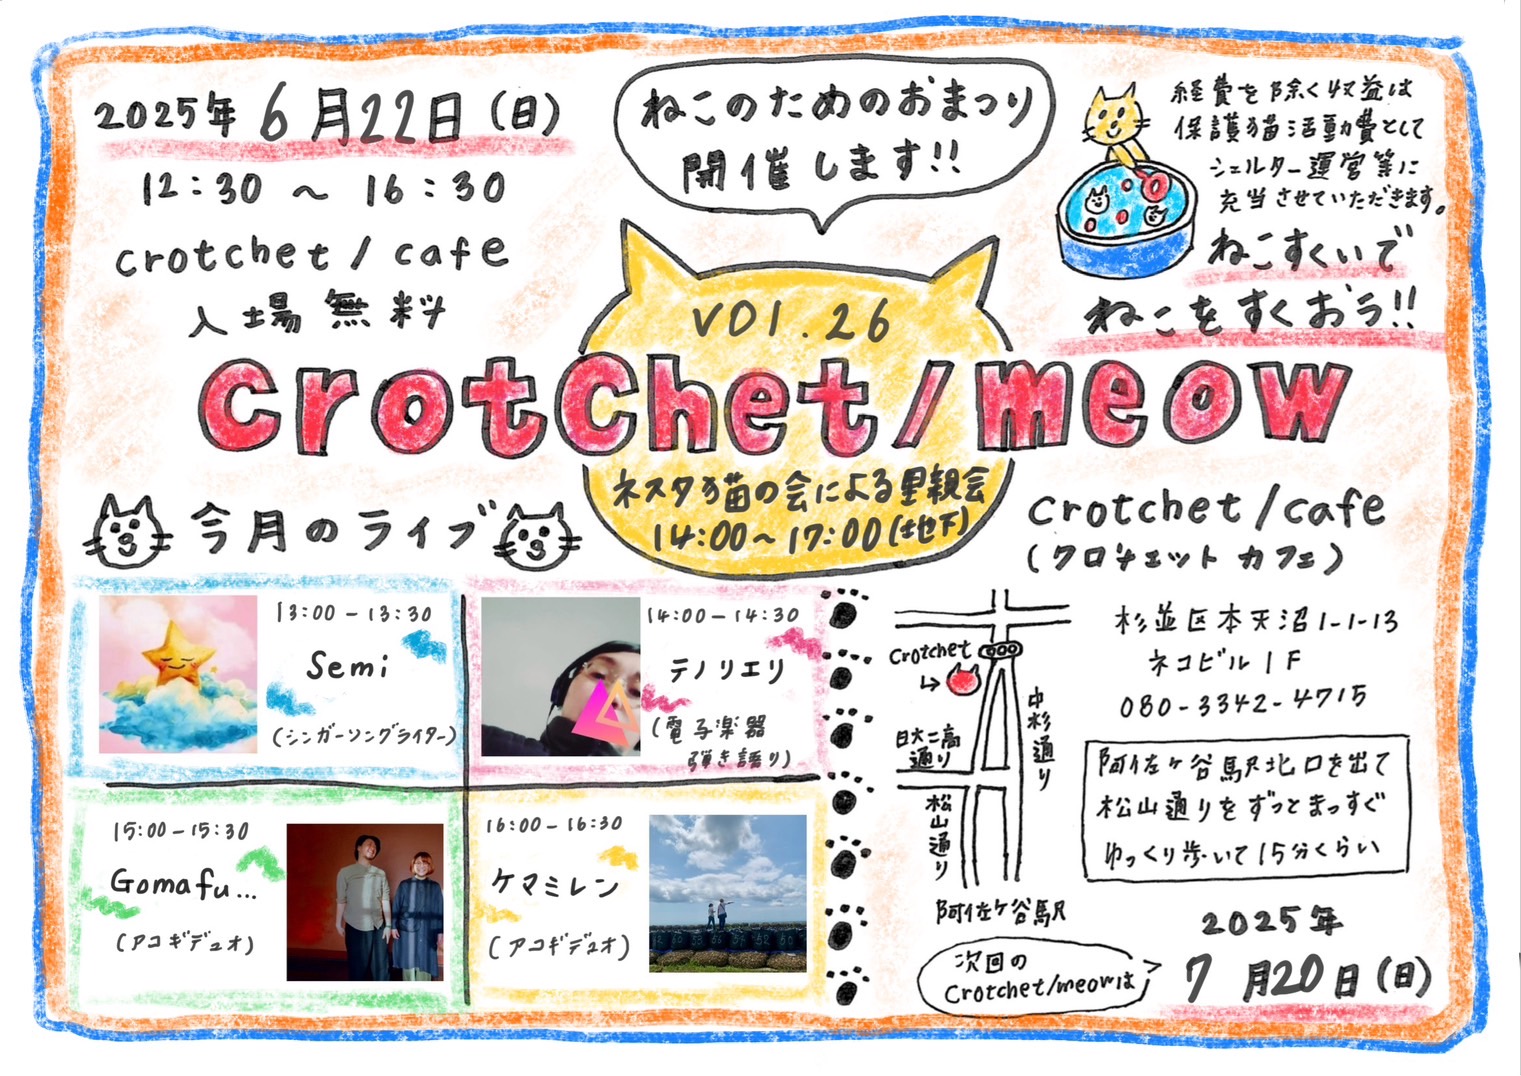 2025年 6月22日(日)
12:30 ~ 16:30
crotchet / cafe
入場無料
ねこのためのおまつり
開催します!!
経費を除く収益は
保護猫活動費として
シェルター運営等に
充当させていただきます。
ねこすくいで
ねこをすくおう!!
VOl.26
crotchet/meow
ネスタ猫の会による里親会
14:00~17:00(地下)
今月のライブ
13:00-13:30
Semi
(シンガーソングライター)
14:00-14:30
テノリエリ
(電子楽器
弾き語り)
15:00-15:30
Gomafu...
(アコギデュオ)
16:00-16:30
ケマミレン
(アコギデュオ)
crotchet/cafe
(クロチェット カフェ)
杉並区本天沼1-1-13
ネコビル1F
080-3342-4715
crotchet
中杉通り
日大二高
通り
松山通り
阿佐ヶ谷駅
阿佐ヶ谷駅北口を出て
松山通りをずっとまっすぐ
ゆっくり歩いて15分くらい
次回の
Crotchet/meowは
2025年
7月20日(日)